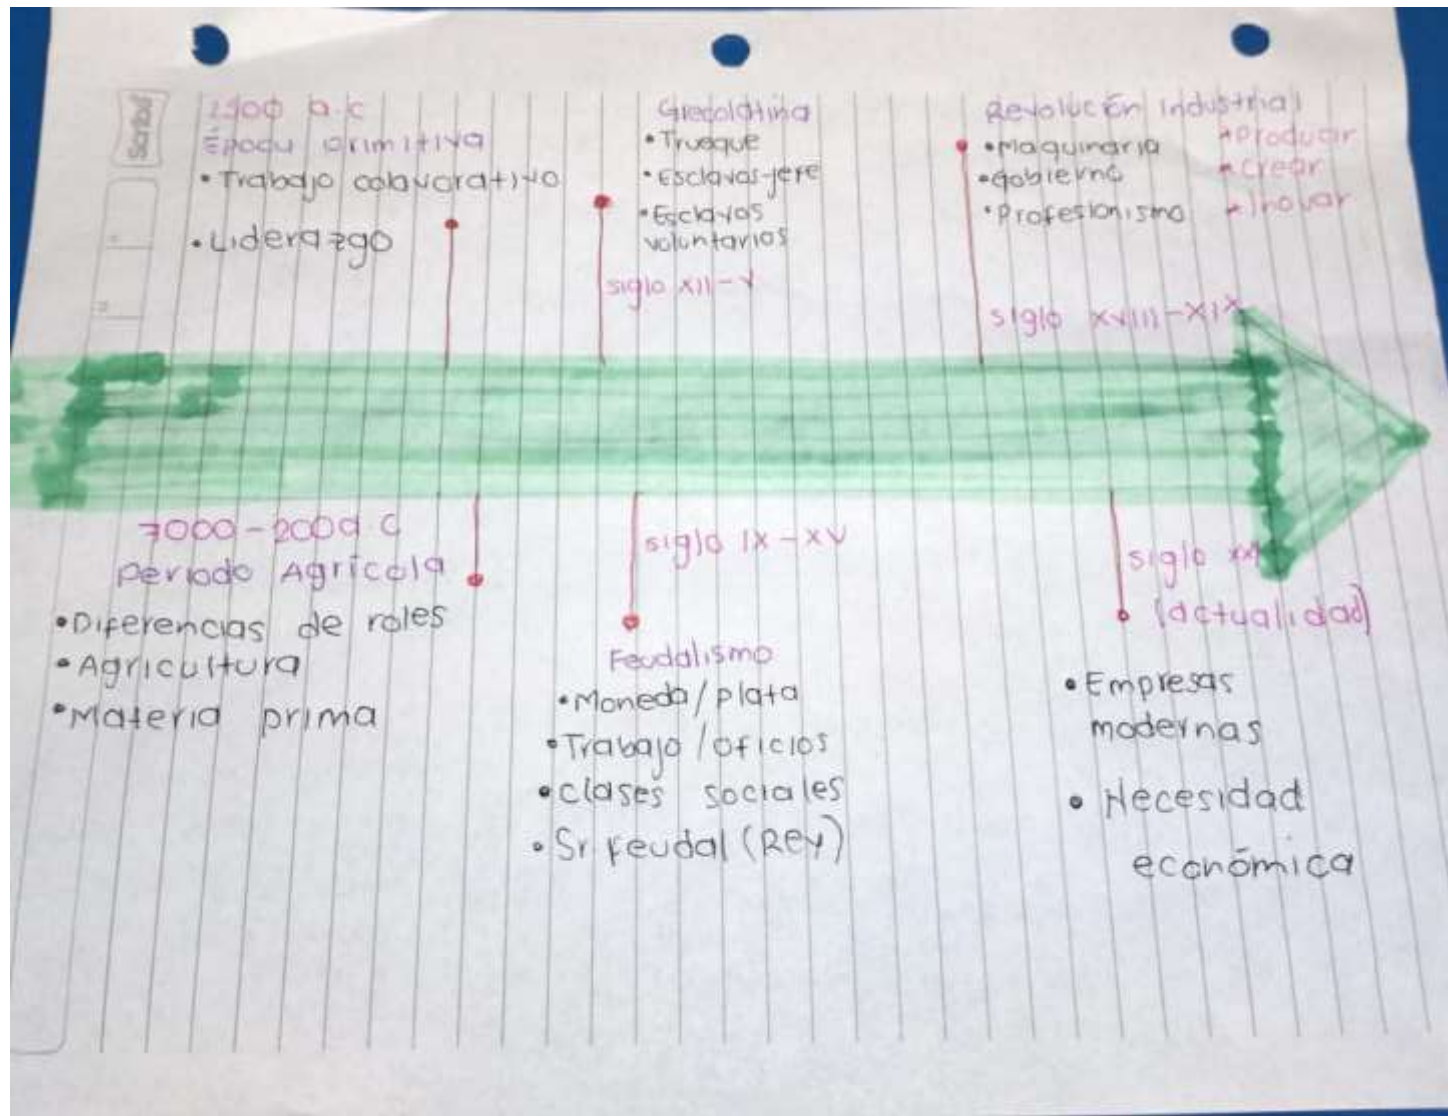 Scribe
2500 a.c
Época primitiva
• Trabajo colavorativo
• Liderazgo
Grecolatina
• Trueque
• Esclavos-jefe
• Esclavos
voluntarios
siglo XII-V
Revolución Industrial
• Maquinaria
• Gobierno
• Profesionismo
*Producir
*crear
*Inovar
siglo XVIII-XIX
7000-2000 a.C
Periodo Agrícola
• Diferencias de roles
• Agricultura
• Materia prima
siglo IX-XV
Feudalismo
• Moneda/plata
• Trabajo/oficios
• Clases sociales
• Sr feudal (Rey)
siglo
(actualidad)
• Empresas
modernas
• Necesidad
económica